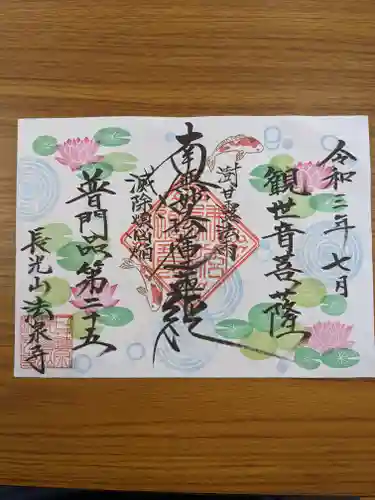 令和三年七月
観世音菩薩
澍甘露法雨
南無妙法蓮華経
滅除煩悩焔
普門品第二十五
長光山法泉寺